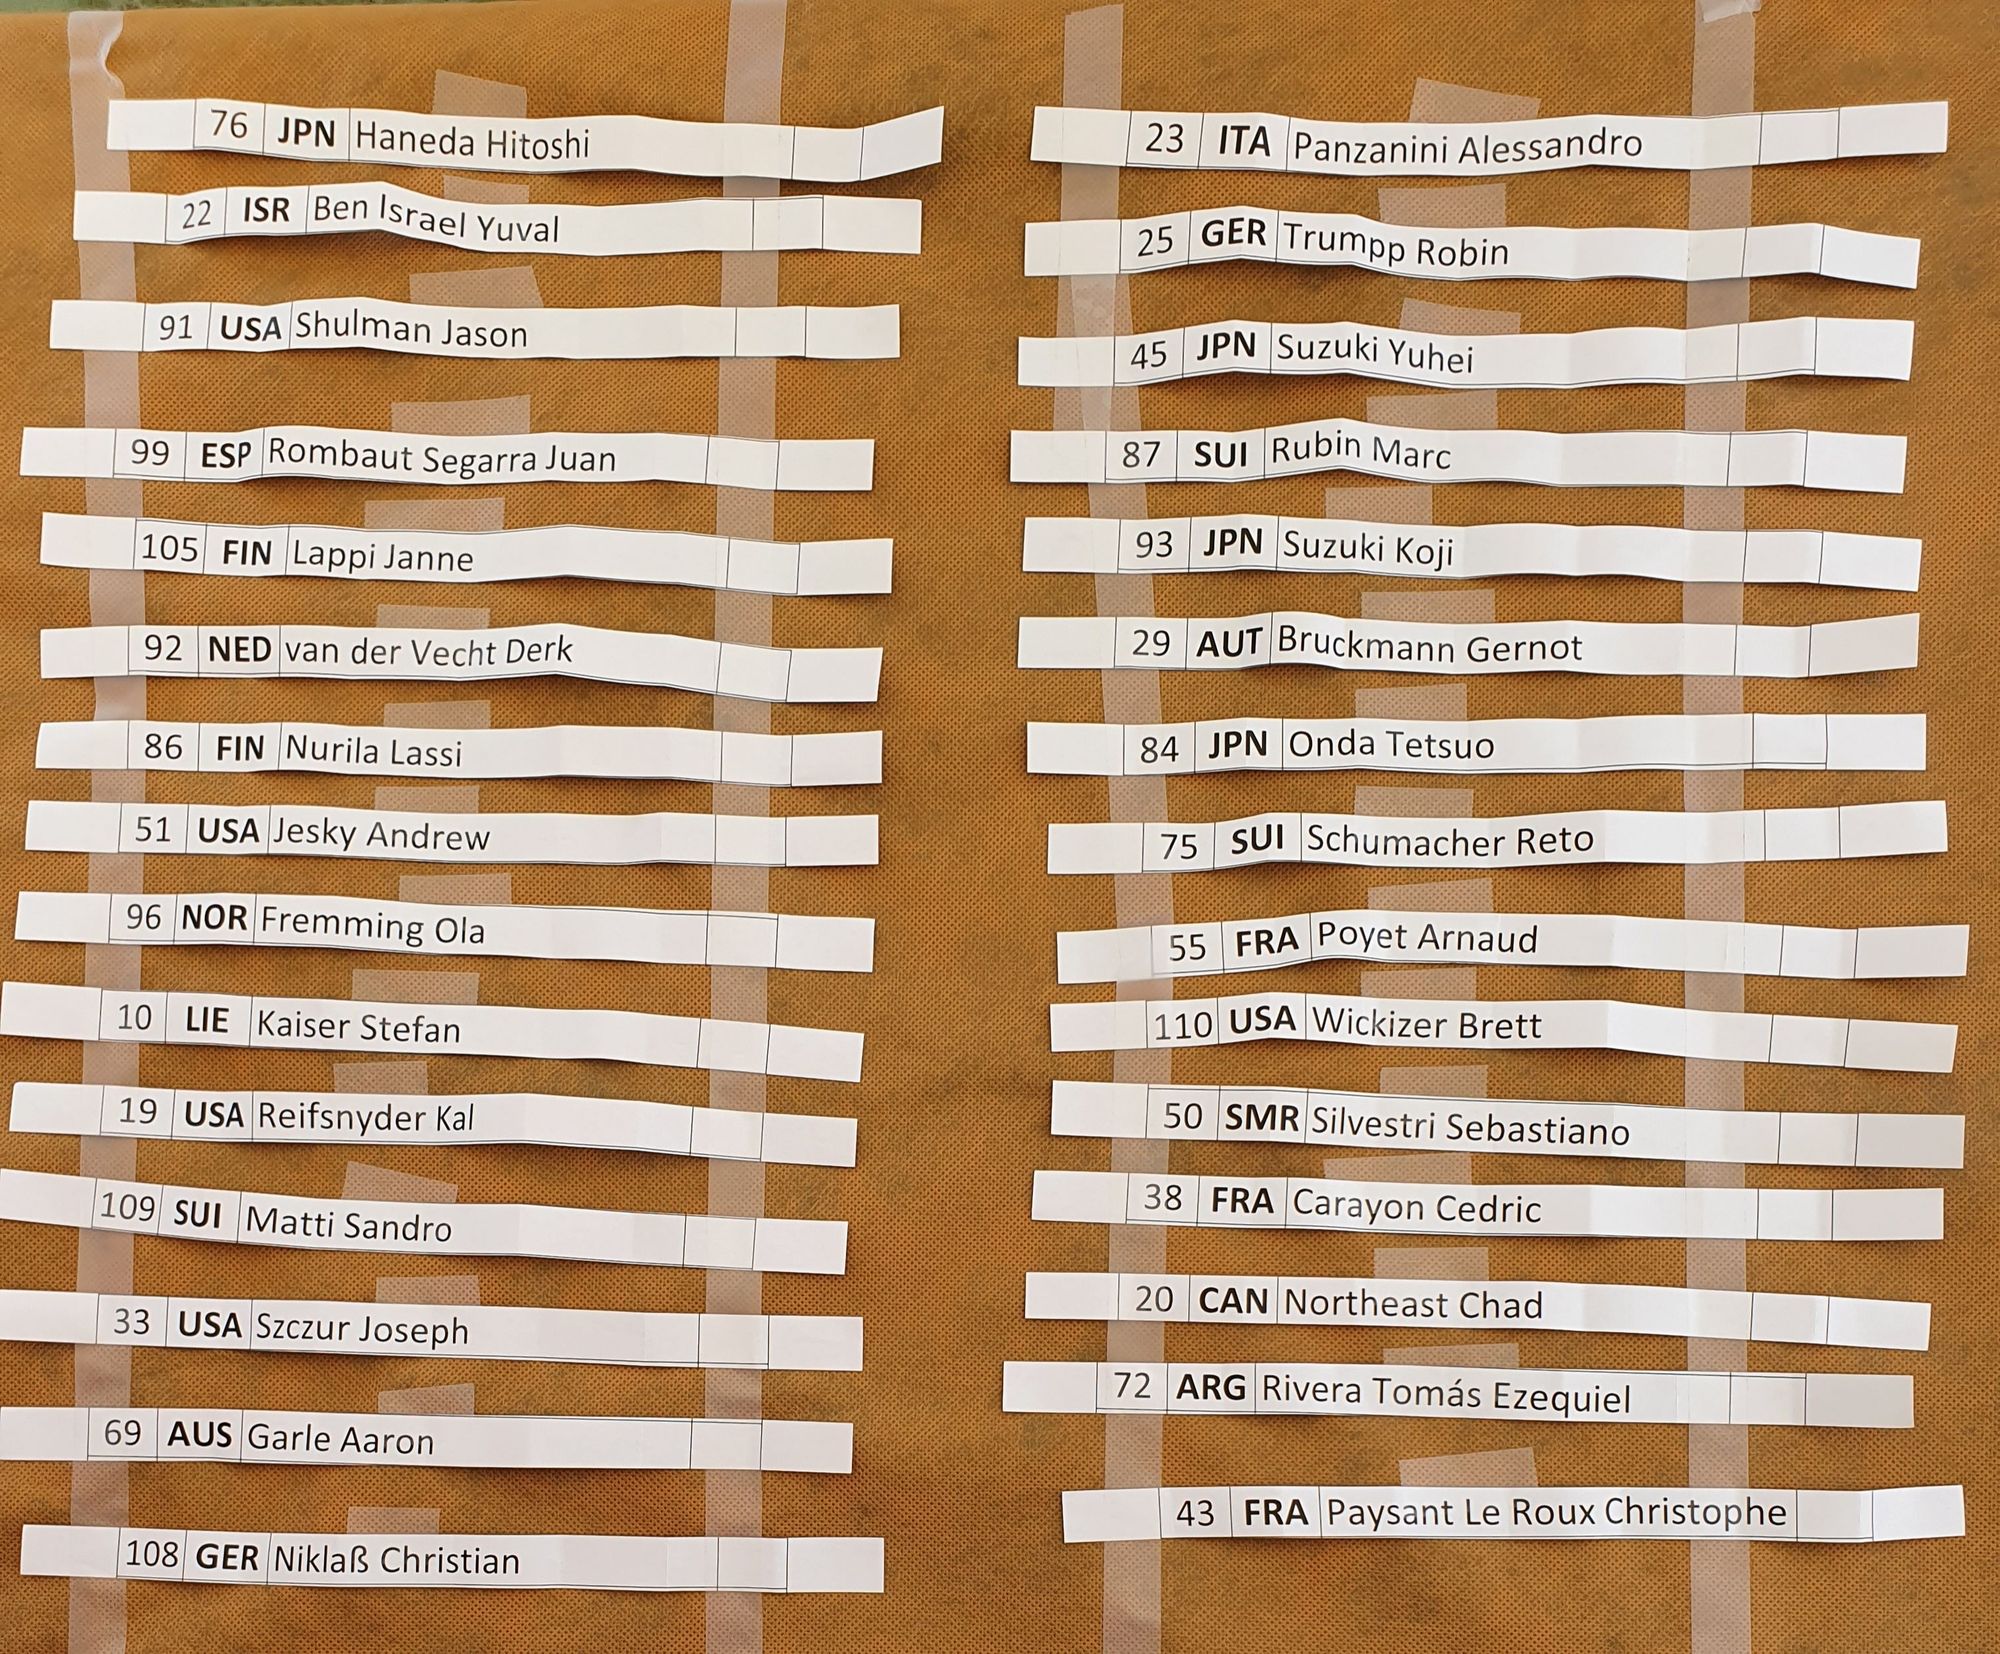 76 JPN Haneda Hitoshi
22 ISR Ben Israel Yuval
91 USA Shulman Jason
99 ESP Rombaut Segarra Juan
105 FIN Lappi Janne
92 NED van der Vecht Derk
86 FIN Nurila Lassi
51 USA Jesky Andrew
96 NOR Fremming Ola
10 LIE Kaiser Stefan
19 USA Reifsnyder Kal
109 SUI Matti Sandro
33 USA Szczur Joseph
69 AUS Garle Aaron
108 GER Niklaß Christian
23 ITA Panzanini Alessandro
25 GER Trumpp Robin
45 JPN Suzuki Yuhei
87 SUI Rubin Marc
93 JPN Suzuki Koji
29 AUT Bruckmann Gernot
84 JPN Onda Tetsuo
75 SUI Schumacher Reto
55 FRA Poyet Arnaud
110 USA Wickizer Brett
50 SMR Silvestri Sebastiano
38 FRA Carayon Cedric
20 CAN Northeast Chad
72 ARG Rivera Tomás Ezequiel
43 FRA Paysant Le Roux Christophe